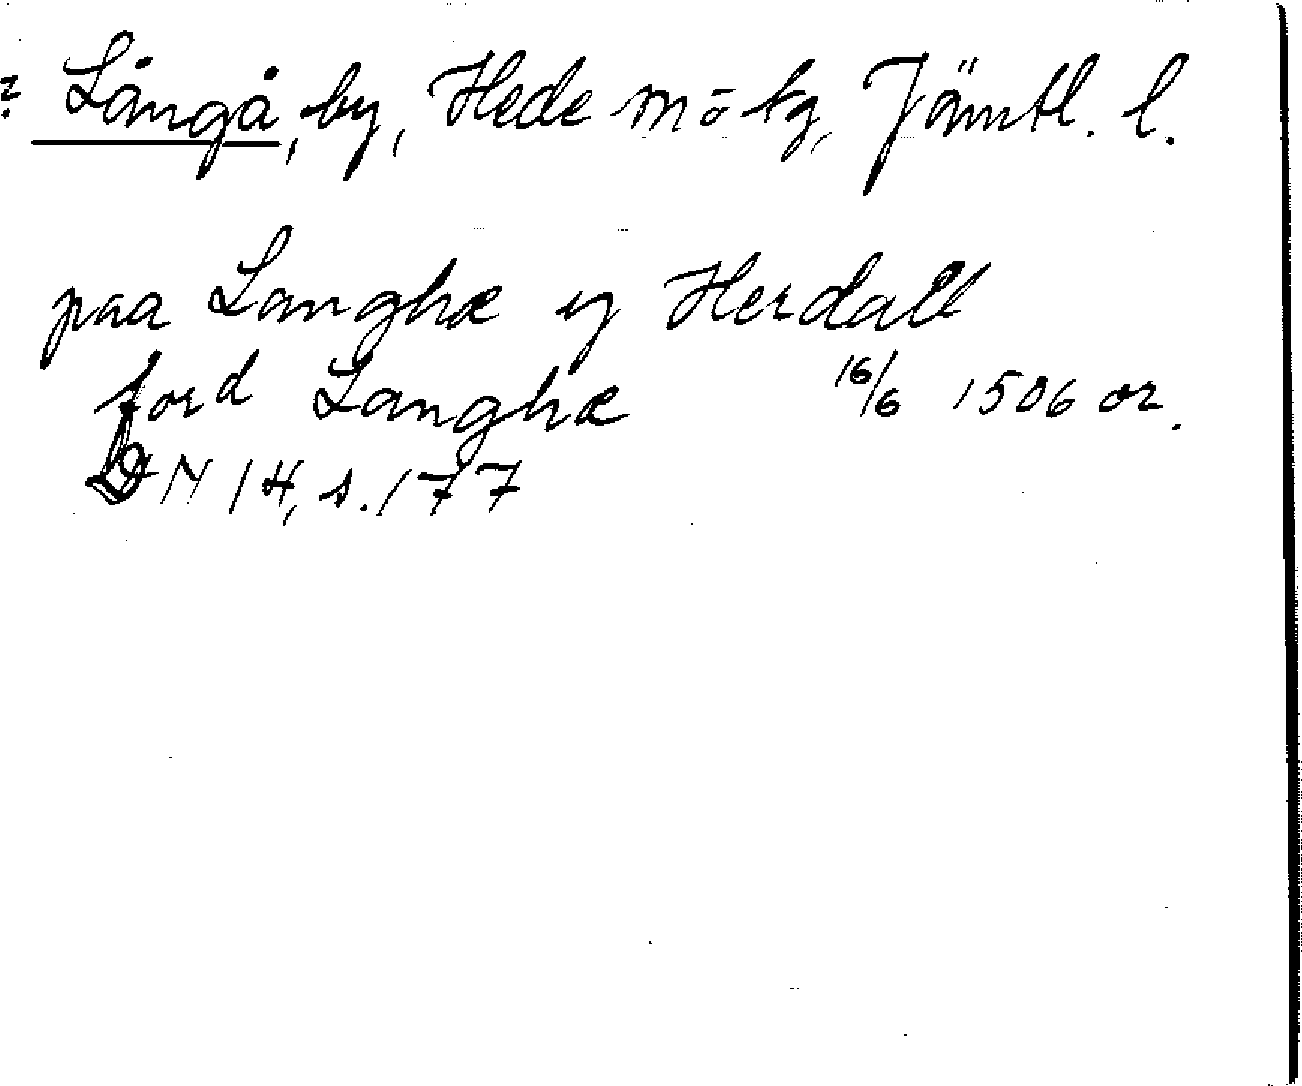 Långå, by, Hede sn o tg, Jämtl. l.
paa Langhæ y Herdall
ford Langhæ 16/6 1506 or.
DN 14, s. 177